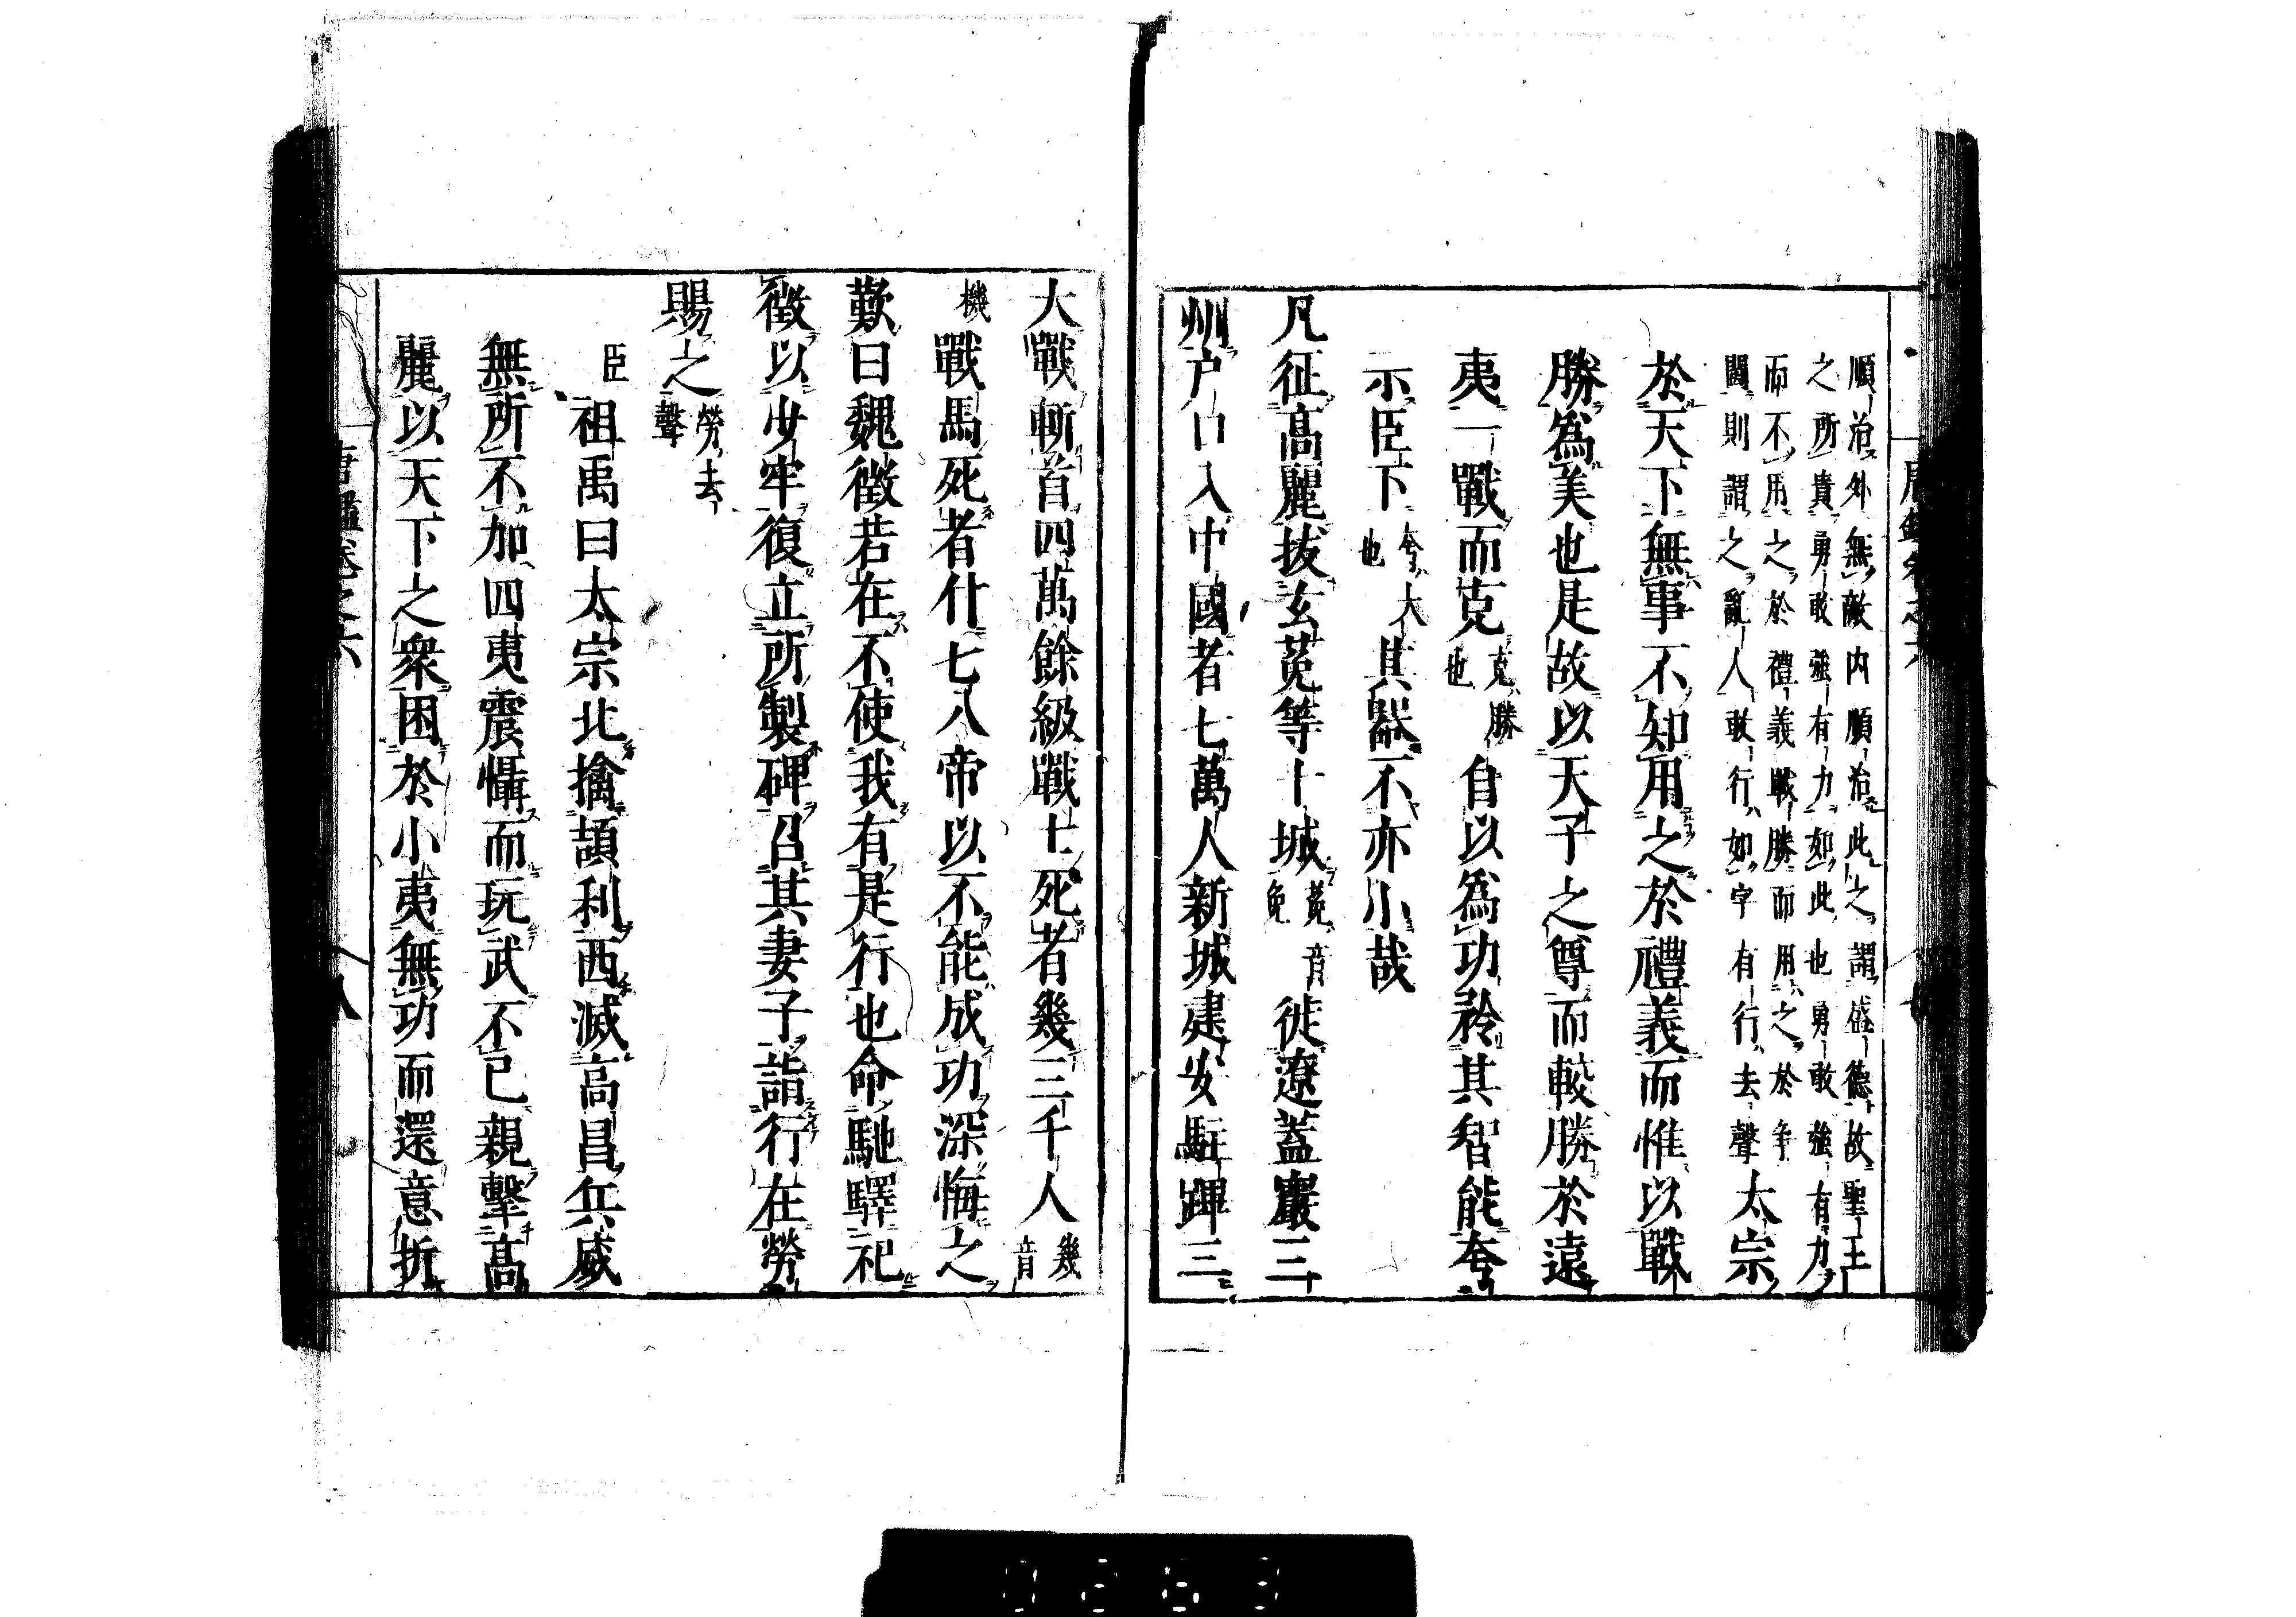 順治外無敵内順治此之謂盛德故聖王
之所貴勇敢強有力如此也勇敢強有力
而不用之於禮義戰勝而用之於爭
鬭則謂之亂人敢行如字有行去聲太宗
於天下無事不知用之於禮義而惟以戰
勝爲美也是故以天子之尊而較勝於遠
夷一戰而克克勝也自以爲功矜其智能夸
示臣下夸大也其器不亦小哉
凡征高麗拔玄菟等十城菟音兔徙遼蓋巖三
州戸口入中國者七萬人新城建安駐蹕三
大戰斬首四萬餘級戰士死者幾三千人幾音
機戰馬死者什七八帝以不能成功深悔之
歎曰魏徵若在不使我有是行也命馳驛祀
徵以少牢復立所製碑召其妻子詣行在勞
賜之勞去聲
臣祖禹曰太宗北擒頡利西滅高昌兵威
無所不加四夷震懾而玩武不已親擊高
麗以天下之衆困於小夷無功而還意折
唐鑑卷之六
八